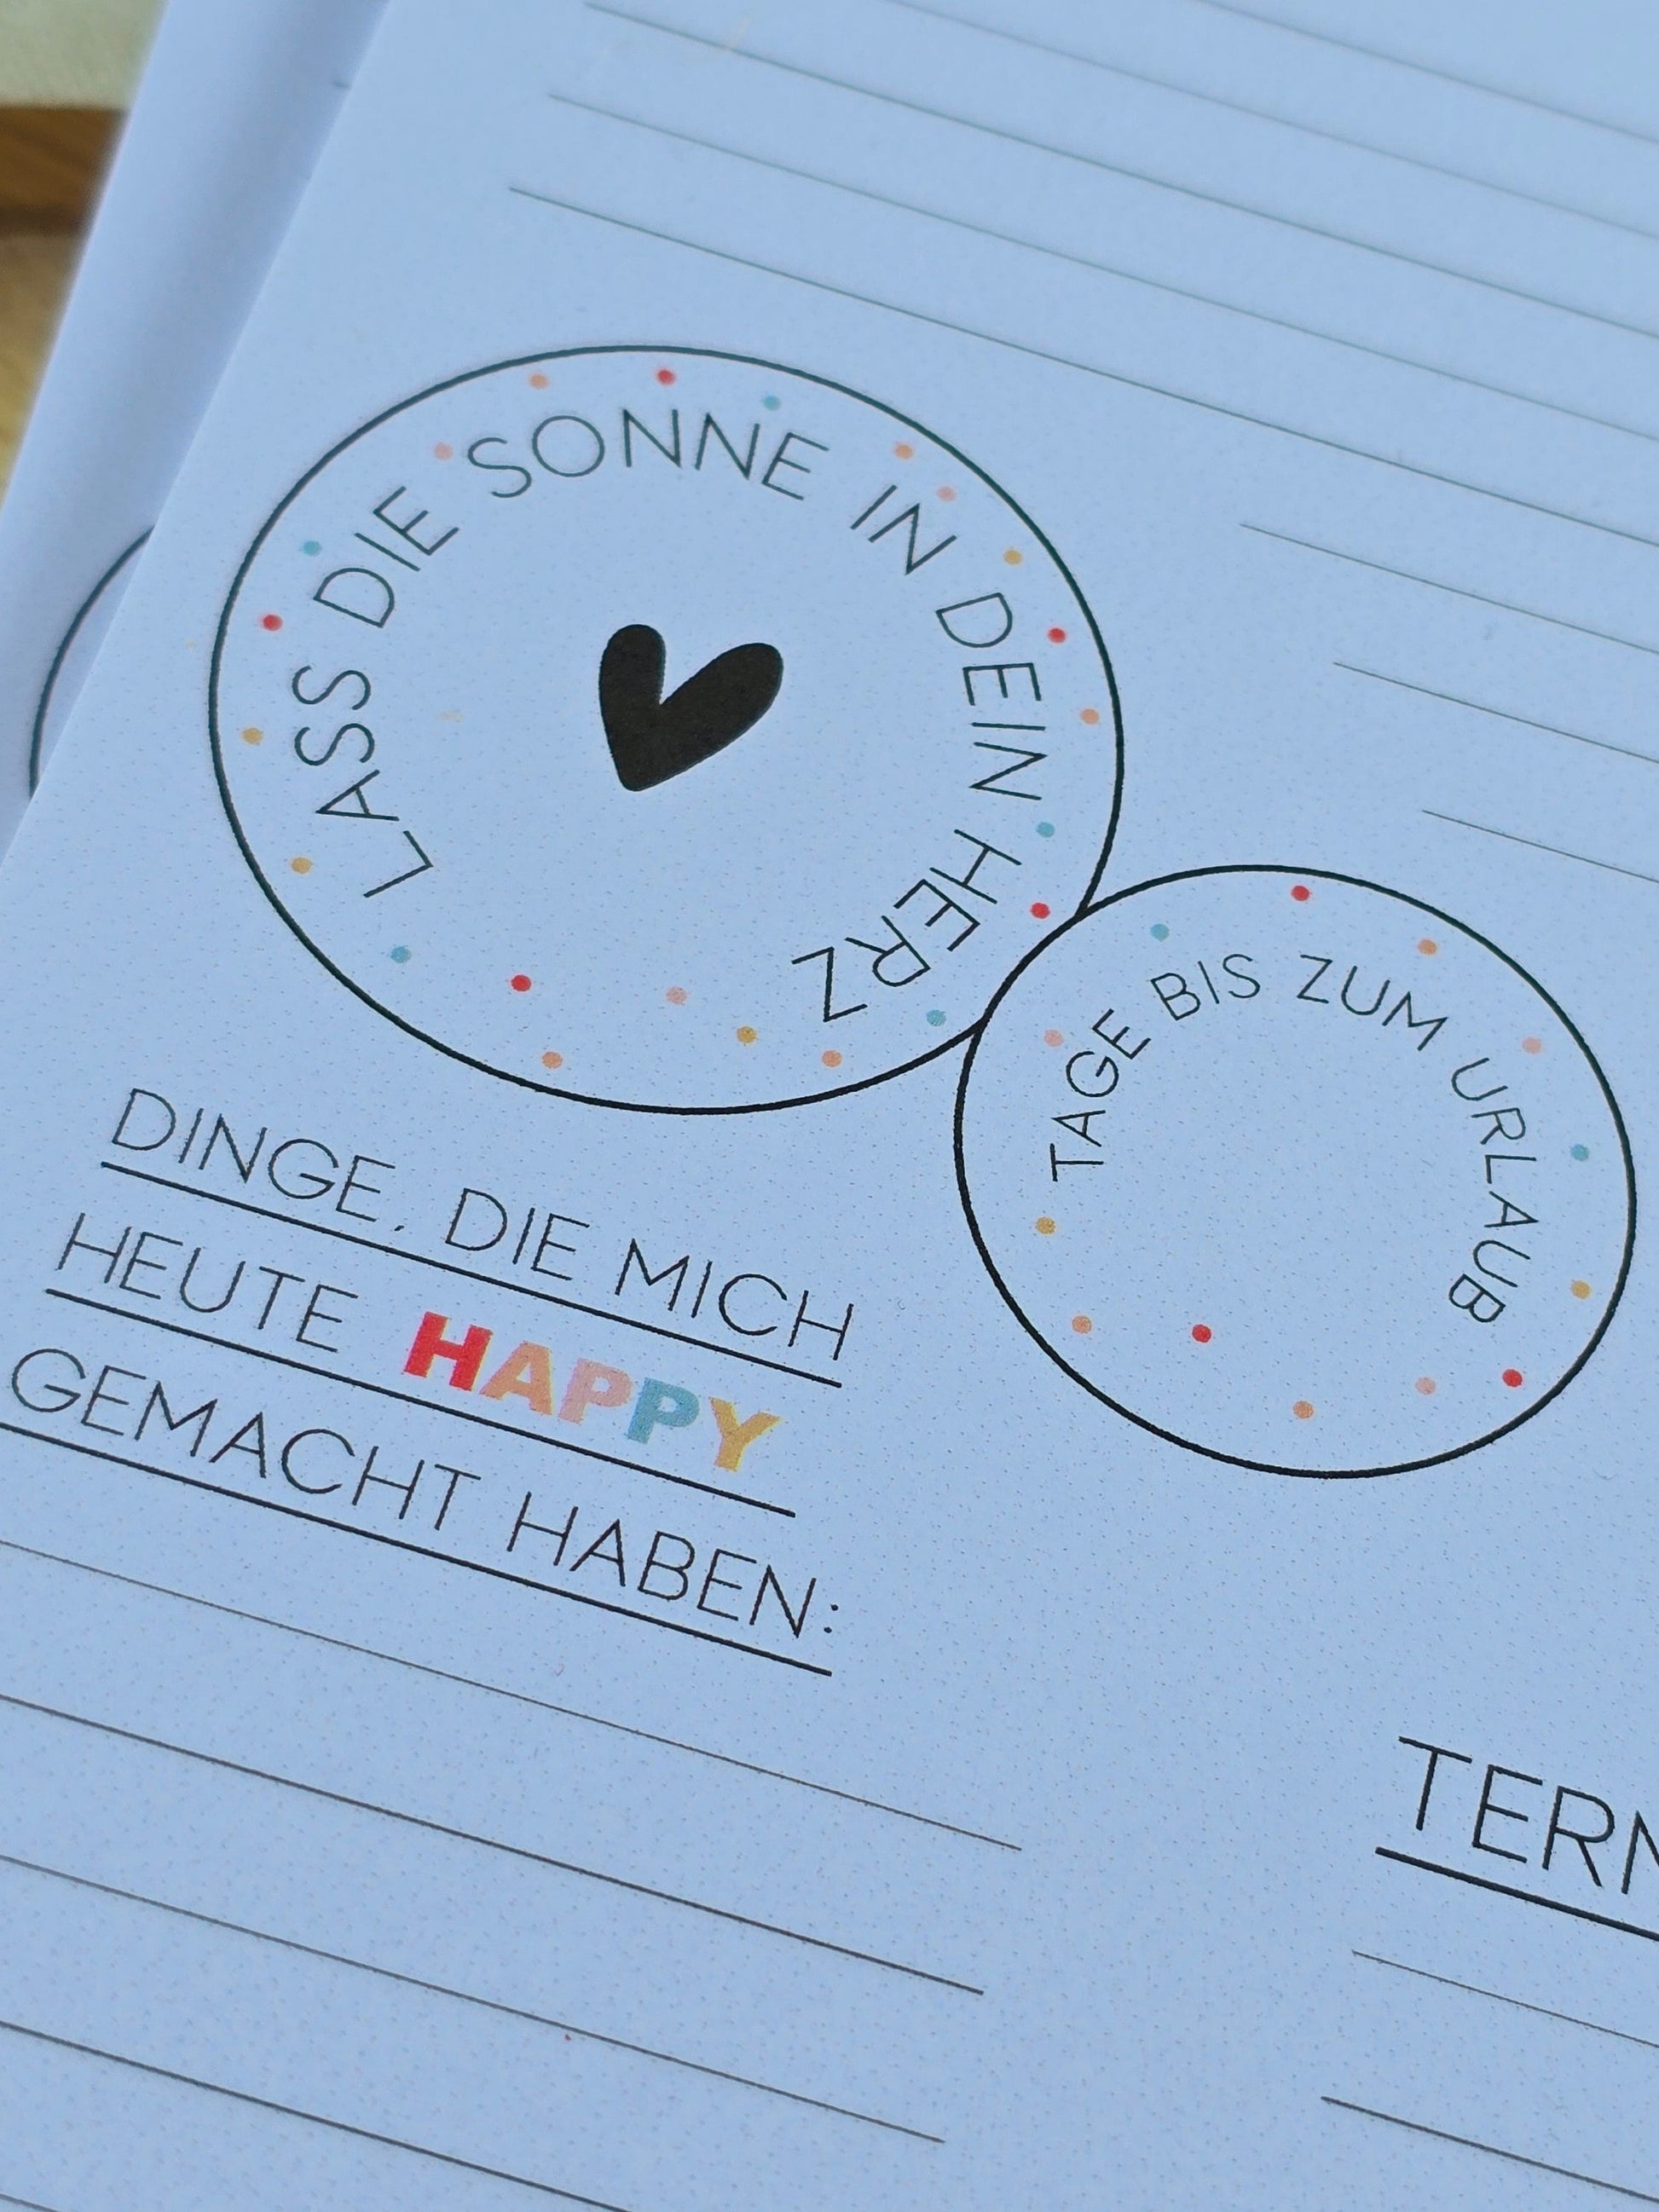 LASS DIE SONNE IN DEIN HERZ
TAGE BIS ZUM URLAUB
DINGE, DIE MICH
HEUTE HAPPY
GEMACHT HABEN: